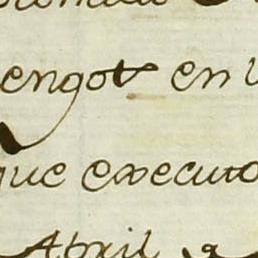 engot en
que executo
Abril